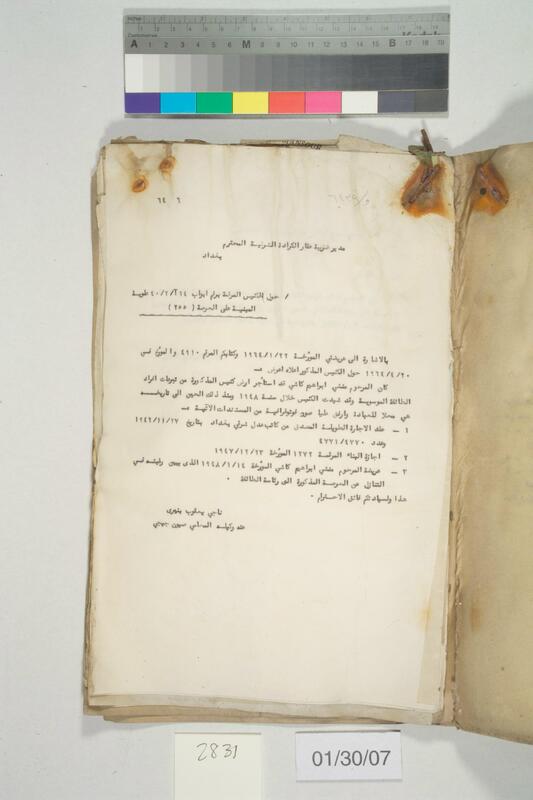 ٦ ٦٤
مدير ضريبة عقار الكرادة الشرقية المحترم
بغداد
/ حول الكنيس المرقمة ابواب ٤٠/٢/٢١٤ طويبة
المبنية على العرصة ( ٢٥٥ )
بالاشارة الى عريضتي المورخة ١٩٦٤/١/٢٢ وكتابكم المرقم ٤٩١٠ والمورخ في
١٩٦٤/٤/٢٠ حول الكنيس المذكور اعلاه اعرض :-
كان المرحوم منشي ابراهيم كاشي قد استأجر ارض كنيس المذكورة من تبرعات افراد
الطائفة الموسوية وقد شيدت الكنيس خلال سنة ١٩٤٨ ومنذ ذلك الحين الى تاريخه
هي محلا للعبادة وارفق طيا صور فوتوغرافية من المستندات الاتية :-
١ - عقد الاجارة الطويلة المصدق من كاتب عدل شرقي بغداد بتاريخ ١٩٤٢/١١/٢٧
وعدد ٤٧٧١/٤٧٧٠
٢ - اجازة البناء المرقمة ١٢٧٢ المورخة ١٩٤٧/١٢/٢٣
٣ - عريضة المرحوم منشي ابراهيم كاشي المورخة ١٩٤٨/١/١٤ الذي يبين رغبته في
التنازل عن العرصة المذكورة الى رئاسة الطائفة .
هذا ولسيادتكم فائق الاحترام .
ناجي يعقوب
عنه وكيله المحامي
2831
01/30/07